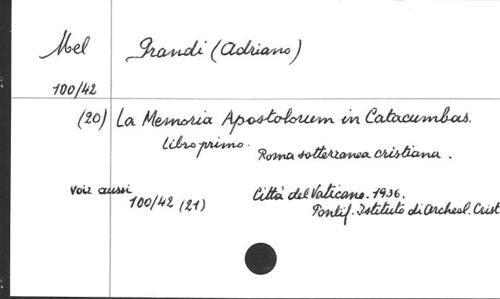 Mel Prandi (Adriano)
100/42
(20) La Memoria Apostolorum in Catacumbas.
Libro primo.
Roma sotterranea cristiana.
Voir aussi
100/42 (21)
Città del Vaticano. 1936.
Pontif. Istituto di Archeol. Crist